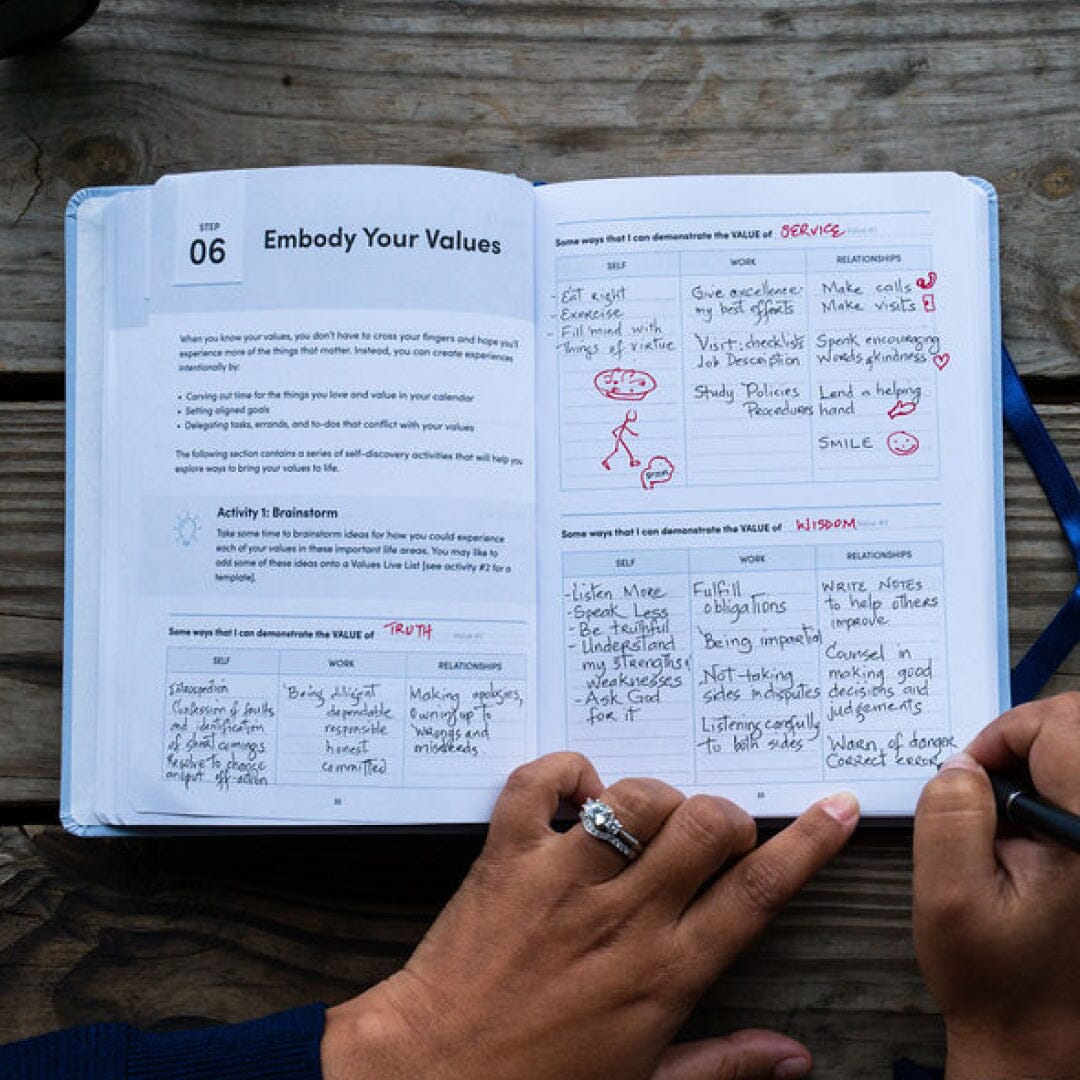 STEP
06
Embody Your Values
When you know your values, you don't have to cross your fingers and hope you'll
experience more of the things that matter. Instead, you can create experiences
intentionally by:
• Carving out time for the things you love and value in your calendar
• Setting aligned goals
• Delegating tasks, errands, and to-dos that conflict with your values
The following section contains a series of self-discovery activities that will help you
explore ways to bring your values to life.
Activity 1: Brainstorm
Take some time to brainstorm ideas for how you could experience
each of your values in these important life areas. You may like to
add some of these ideas onto a Values Live List [see activity #2 for a
template].
Some ways that I can demonstrate the VALUE of TRUTH Value #1
SELF
Introspection
Confession of faults
and identification
of short comings
Resolve to change
and put off-action
WORK
Being diligent
dependable
responsible
honest
committed
RELATIONSHIPS
Making apologies,
owning up to
wrongs and
misdeeds
Some ways that I can demonstrate the VALUE of SERVICE
SELF
- Eat right
- Exercise
- Fill mind with
things of virtue
WORK
Give excellence
my best efforts
Visit: checklists
Job Description
Study Policies
Procedures
RELATIONSHIPS
Make calls
Make visits
Speak encouraging
Words of kindness
Lend a helping
hand
SMILE
Some ways that I can demonstrate the VALUE of WISDOM
SELF
- Listen More
- Speak Less
- Be truthful
- Understand
my strengths
weaknesses
- Ask God
for it
WORK
Fulfill
obligations
Being impartial
Not-taking
sides in disputes
Listening carefully
to both sides
RELATIONSHIPS
WRITE NOTES
to help others
improve
Counsel in
making good
decisions and
judgements
Warn of danger
Correct error